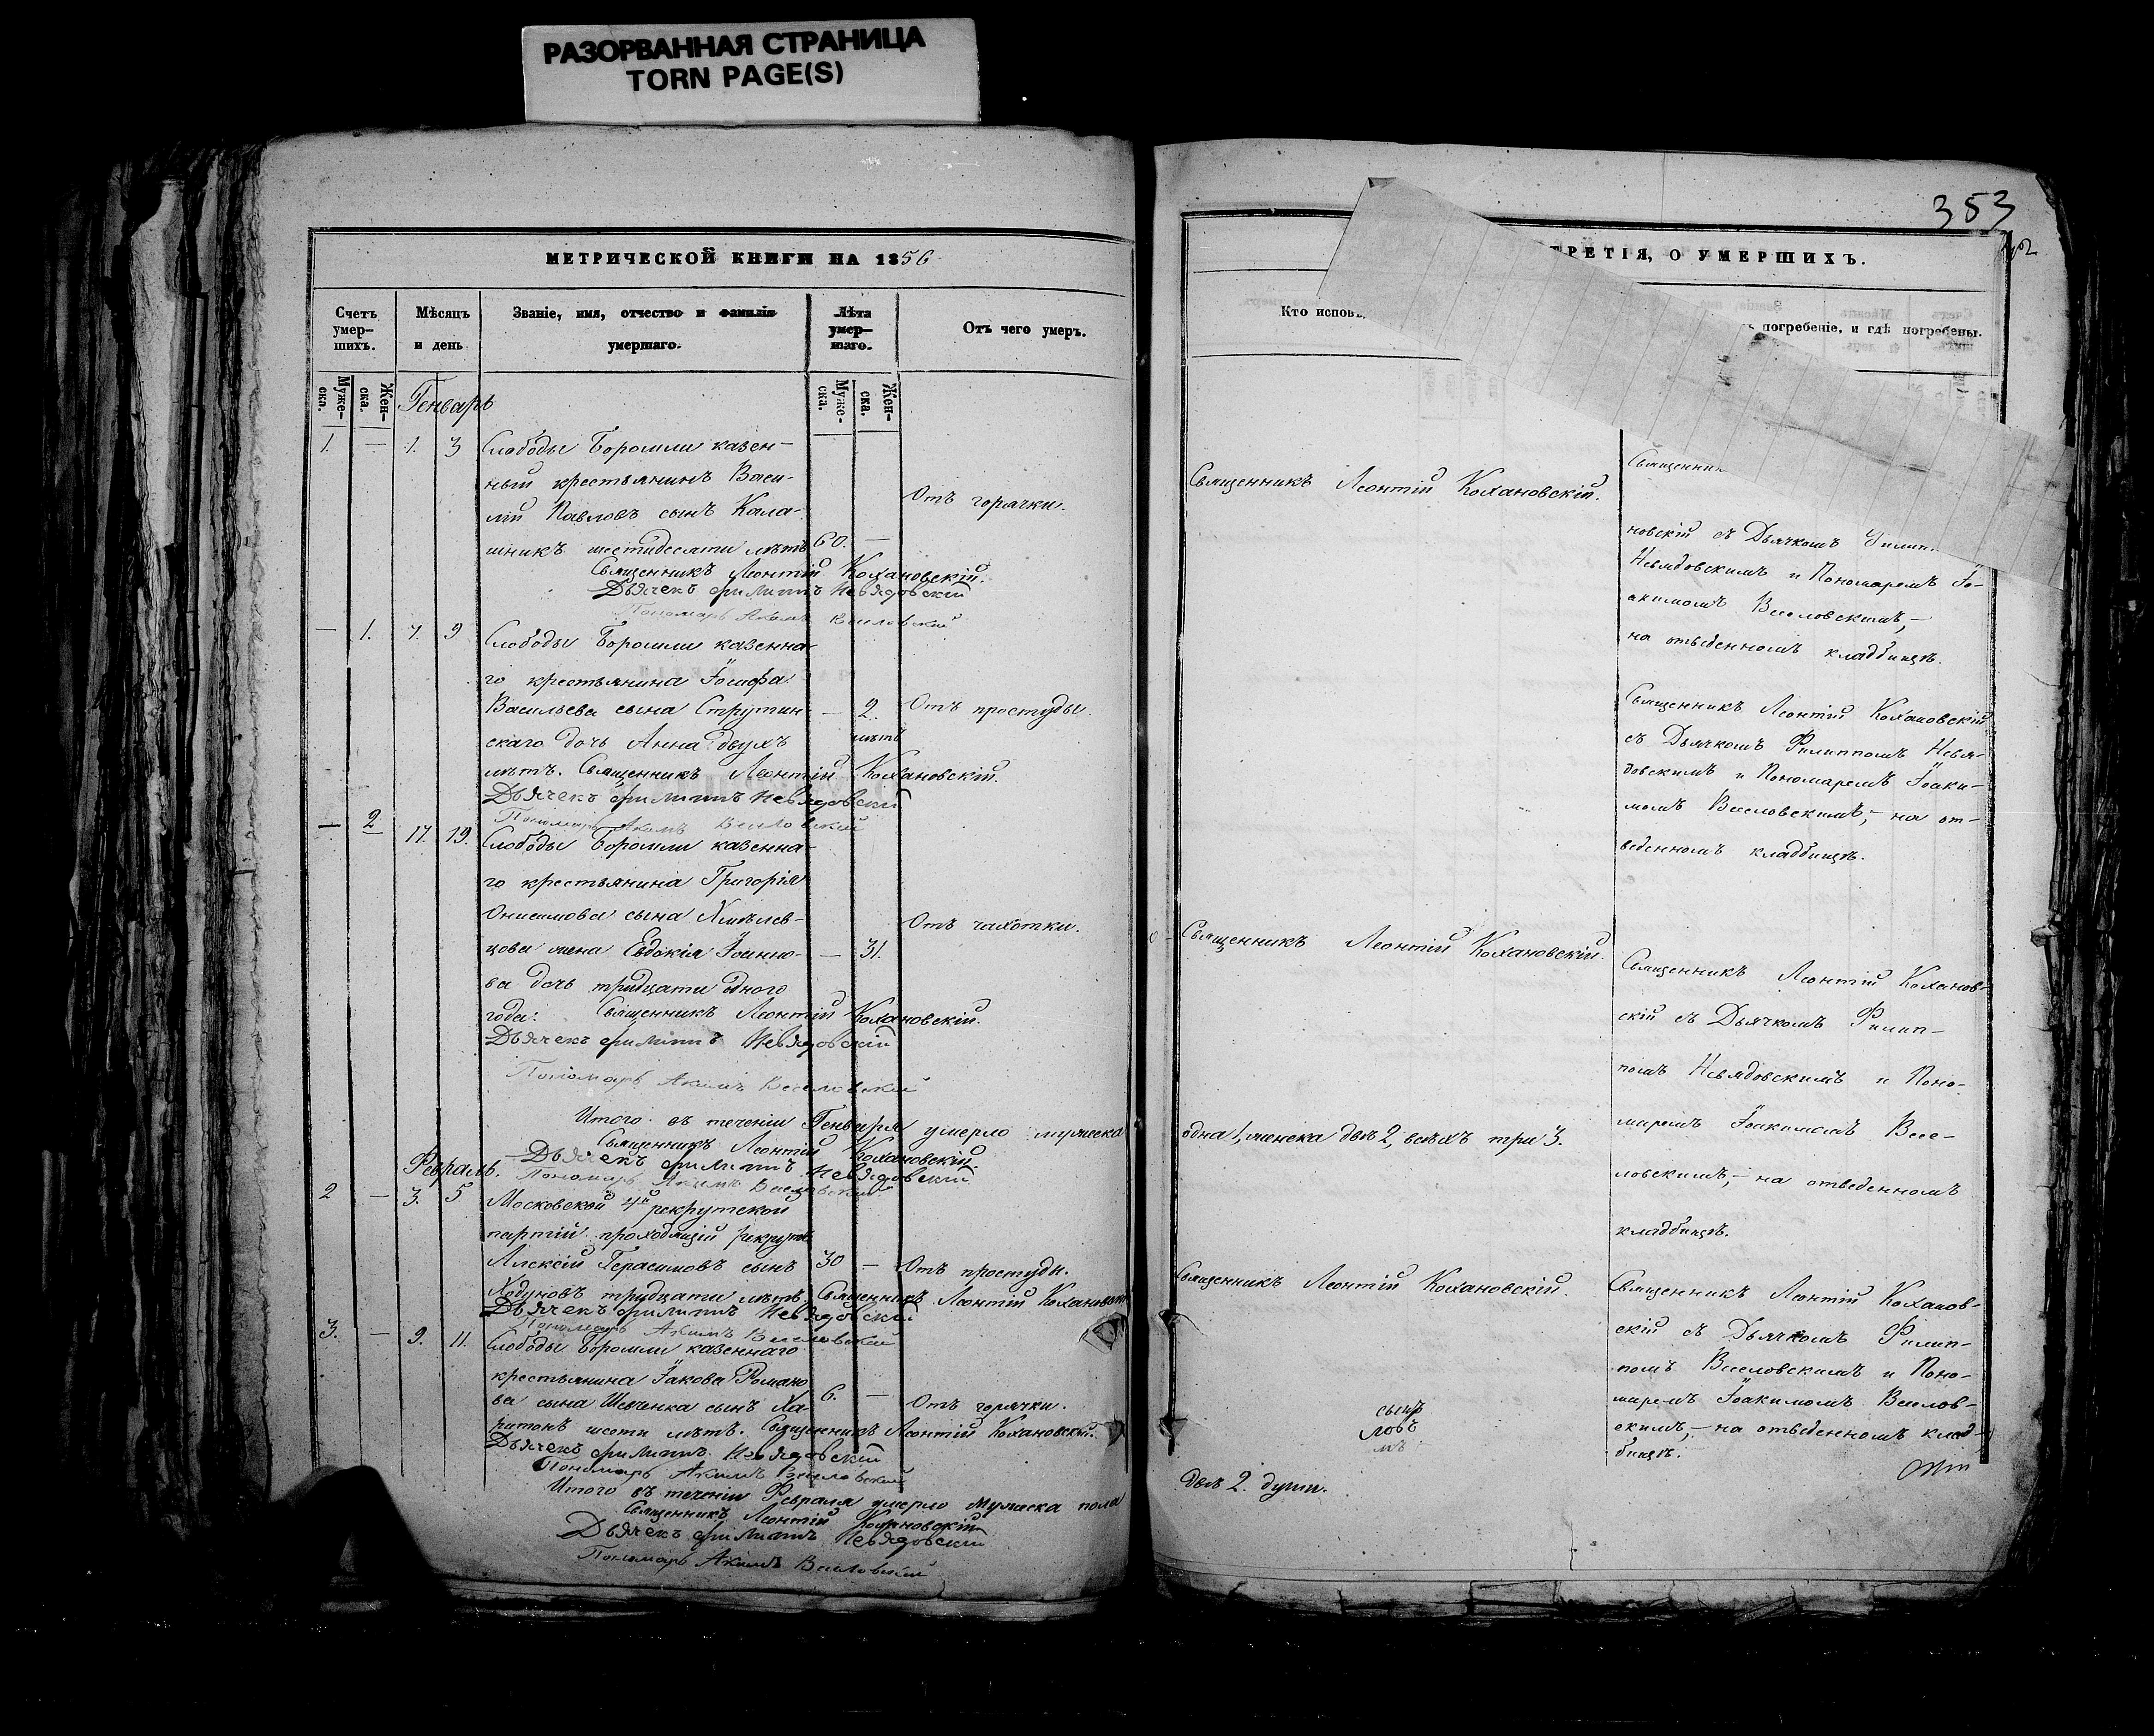 РАЗОРВАННАЯ СТРАНИЦА
TORN PAGE(S)
МЕТРИЧЕСКОЙ КНИГИ НА 1856
Счетъ умер-шихъ.
Мѣсяцъ и день
Званіе, имя, отчество и фамилія умершаго.
Лѣта умер-шаго.
Отъ чего умеръ.
Муже-ска.
Жен-ска.
Муже-ска.
Жен-ска.
Генварь
1. — 1. 3 Слободы Боромли казен-
ный крестьянинъ Васи-
лій Павловъ сынъ Кала-
Отъ горячки.
шникъ шестидесяти лѣтъ 60. —
Священникъ Леонтій Кохановскій.
Дьячекъ Филиппъ Невядовскій
Пономарь Акимъ Веселовскій
— 1. 7. 9 Слободы Боромли казенна-
го крестьянина Іосифа
Васильева сына Струтин- — 2. Отъ простуды.
скаго дочь Анна двухъ лѣтъ
лѣтъ. Священникъ Леонтій Кохановскій.
Дьячекъ Филиппъ Невядовскій
Пономарь Акимъ Веселовскій
— 2 17. 19. Слободы Боромли казенна-
го крестьянина Григорія
Онисимова сына Хмѣлев-
Отъ чахотки.
цова жена Евдокія — 31.
ва дочь тридцати одного
года: Священникъ Леонтій Кохановскій.
Дьячекъ Филиппъ Невядовскій
Пономарь Акимъ Веселовскій
Итого въ теченіи Генваря умерло мужеска
Священникъ Леонтій Кохановскій.
Дьячекъ Филиппъ Невядовскій
Февраль. Пономарь Акимъ Веселовскій
2 — 3. 5 Московской 4й рекрутской
партіи проходящій рекрутъ
Алексій Герасимовъ сынъ 30 — Отъ простуды.
Ходуновъ тридцати лѣтъ. Священникъ Леонтій Кохановскій
Дьячекъ Филиппъ Невядовскій
Пономарь Акимъ Веселовскій
3. — 9. 11. Слободы Боромли казеннаго
крестьянина Іакова Романо
ва сына Шевченка сынъ Ха- 6. — Отъ горячки.
ритонъ шести лѣтъ. Священникъ Леонтій Кохановскій.
Дьячекъ Филиппъ Невядовскій
Пономарь Акимъ Веселовскій
Итого въ теченіи Февраля умерло мужеска пола
Священникъ Леонтій Кохановскій
Дьячекъ Филиппъ Невядовскій
Пономарь Акимъ Веселовскій
353
РЕТІЯ, О УМЕРШИХЪ.
Кто исповѣ
погребеніе, и гдѣ погребены.
Священникъ Леонтій Кохановскій.
Священни
новскій съ Дьячкомъ Филип
Невядовскимъ и Пономаремъ Іо-
акимомъ Веселовскимъ,—
на отведенномъ кладбищѣ.
Священникъ Леонтій Кохановскій
съ Дьячкомъ Филиппомъ Невя-
довскимъ и Пономаремъ Іоаки-
момъ Веселовскимъ,— на от-
веденномъ кладбищѣ.
Священникъ Леонтій Кохановскій.
Священникъ Леонтій Коханов-
скій съ Дьячкомъ Филип-
помъ Невядовскимъ и Поно-
маремъ Іоакимомъ Весе-
ловскимъ,— на отведенномъ
кладбищѣ.
одна 1, женска двѣ 2, всѣхъ три 3.
Священникъ Леонтій Кохановскій.
Священникъ Леонтій Коханов-
скій съ Дьячкомъ Филип-
помъ Веселовскимъ и Поно-
маремъ Іоакимомъ Веселов-
скимъ,— на отведенномъ клад-
бищѣ.
сынъ
ловъ
двѣ 2. души.